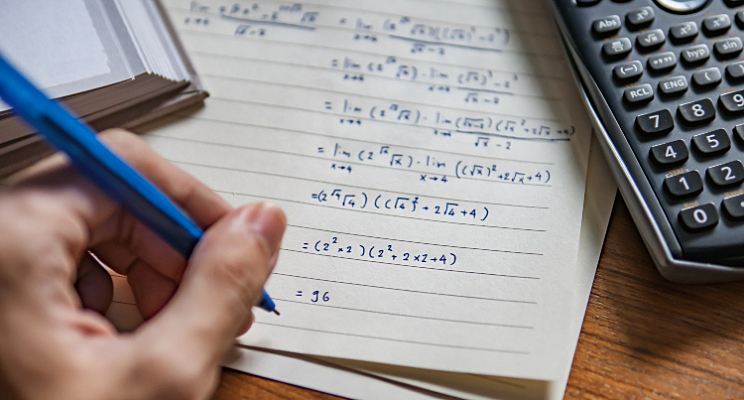 = lim x→4 (2^√x √x)((√x)³-2³) / √x-2
= lim x→4 (2^√x √x) · lim x→4 (√x)³-2³ / √x-2
= lim x→4 (2^√x √x) · lim x→4 (√x-2)(√x²+2√x+4) / √x-2
= lim x→4 (2^√x √x) · lim x→4 ((√x)²+2√x+4)
=(2^√4 √4) ((√4)²+2√4+4)
= (2²×2)(2²+2×2+4)
= 96
Abs x³
√x x²
hyp sin
(-) °'"
RCL ENG (
7 8 9
4 5
1 2
0